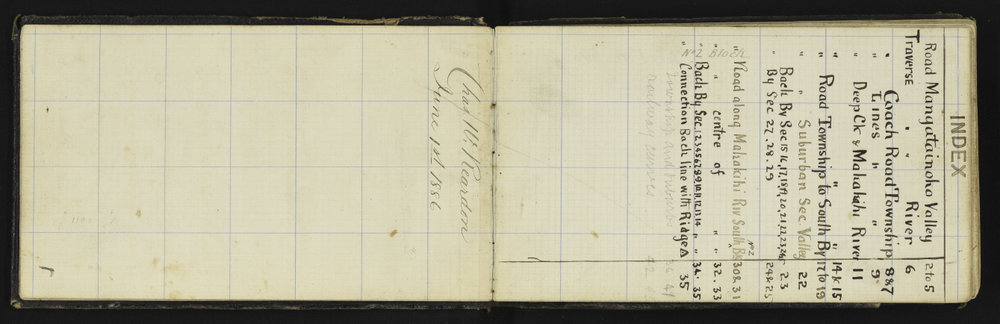 Chas. W. Reardon
June 1st 1886
INDEX
Road Mangatainoko Valley 2 to 5
Traverse " " River 6
" Coach Road Township 8 & 7
" Lines " " 9
" Deep Ck & Makakihi River 11
" " " 14 & 15
" Road Township to South By 17 to 19
" Suburban Sec. Valley 22
" Back By Sec 15,16,17,18,19,20,21,22,23,26 23
By Sec 27.28.29 24 & 25
" Road along Makakihi Riv South By No 2 30 & 31
" " centre of " " 32.33
No 2 Block
" Back By Sec. 1,2,3,4,5,6,7,8,9,10,11,12,13,14 " " 34.35
" Connection Back line with Ridge Δ 35